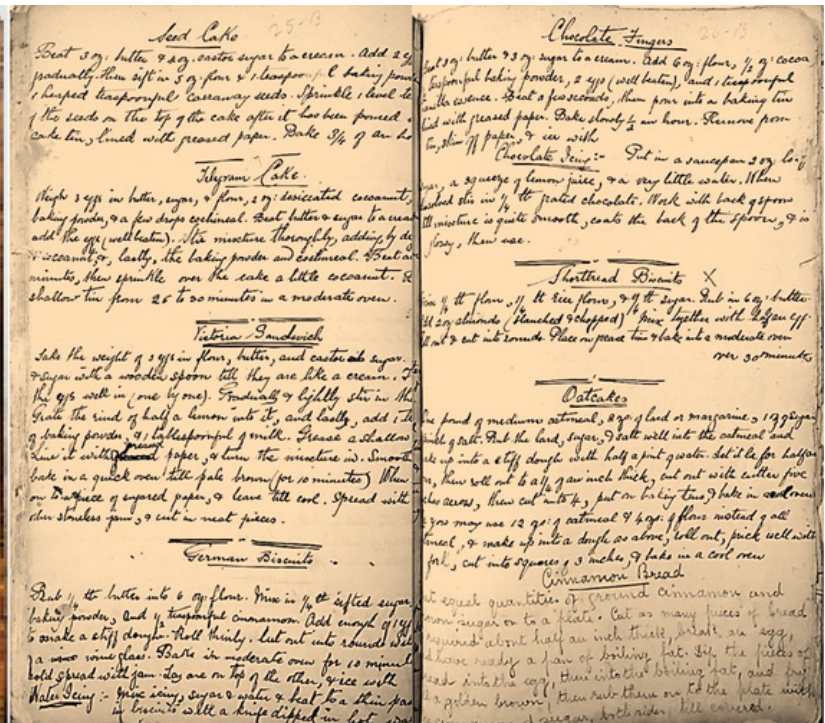 Seed Cake
Beat 3 oz: butter & 4 oz: castor sugar to a cream. Add 2
gradually then sift in 5 oz flour & 1 teaspoonful baking
1 heaped teaspoonful carraway seeds. Sprinkle 1 level
of the seeds on the top of the cake after it has been poured
cake tin, lined with greased paper. Bake 3/4 of an
Telegram Cake.
Weigh 3 eggs in butter, sugar, & flour, 2 oz: desiccated cocoanut,
baking powder, & a few drops cochineal. Beat butter & sugar to a
add the eggs (well beaten). Stir mixture thoroughly, adding by
cocoanut &, lastly, the baking powder and cochineal. Beat
minutes, then sprinkle over the cake a little cocoanut.
shallow tin from 25 to 30 minutes in a moderate oven.
Victoria Sandwich
Take the weight of 3 eggs in flour, butter, and castor sugar.
& sugar with a wooden spoon till they are like a cream.
the eggs well in (one by one). Gradually & lightly stir in the
Grate the rind of half a lemon into it, and lastly, add 1
of baking powder, & 1 tablespoonful of milk. Grease a shallow
Line it with greased paper, & turn the mixture in. Smooth
bake in a quick oven till pale brown (for 10 minutes) When
on to a piece of sugared paper, & leave till cool. Spread with
other stoneless jam, & cut in neat pieces.
German Biscuits
Rub 1/4 lb butter into 6 oz: flour. Mix in 1/4 lb sifted sugar,
baking powder, and 1/2 teaspoonful cinnamon. Add enough of 1 egg
to make a stiff dough. Roll thinly. Cut out into rounds
a wine glass. Bake in moderate oven for 10
cold spread with jam. Lay one on top of the other, & ice with
Water Icing:- Mix icing sugar & water & heat to a thin
in biscuits with a knife dipped in hot
Chocolate Fingers
3 oz: butter & 3 oz: sugar to a cream. Add 6 oz: flour, 1/2 oz: cocoa
teaspoonful baking powder, 2 eggs (well beaten), and 1 teaspoonful
essence. Beat a few seconds, then pour into a baking tin
with greased paper. Bake slowly 1/2 an hour. Remove from
tin, skin off paper, & ice with
Chocolate Icing:- Put in a saucepan 3 oz:
a squeeze of lemon juice, & a very little water. When
stir in 1/4 lb grated chocolate. Work with back of spoon
mixture is quite smooth, coats the back of the spoon, & is
glossy, then use.
Shortbread Biscuits X
1/4 lb flour, 1/4 lb rice flour, & 1/4 lb sugar. Rub in 6 oz: butter
2 oz almonds (blanched & chopped) Mix together with half an egg
out & cut into rounds. Place on grease tins & bake in a moderate oven
over 30 minutes
Oatcakes
One pound of medium oatmeal, 2 oz. of lard or margarine, 1 oz of sugar
of salt. Rub the lard, sugar, & salt well into the oatmeal and
up into a stiff dough with half a pint of water. Let it lie for half
then roll out to a 1/4 of an inch thick, cut out with cutter five
across, then cut into 4, put on baking tins, & bake in a cool oven
you may use 12 ozs: of oatmeal & 4 ozs: of flour instead of all
& make up into a dough as above, roll out, prick well with
fork, cut into squares, 3 inches, & bake in a cool oven
Cinnamon Bread
equal quantities of ground cinnamon and
sugar on to a plate. Cut as many pieces of bread
required about half an inch thick, break an egg,
have ready a pan of boiling fat. Dip the pieces of
into the egg, then into the boiling fat, and
a golden brown, then rub them on to the plate with
sugar, both sides, till covered.